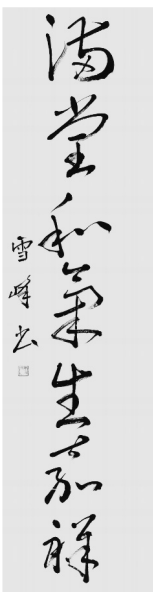 满堂和氣生嘉祥
雪峰书